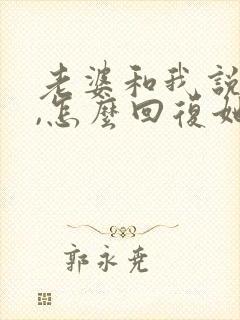 老婆和我說
,怎麼回復她
郭永尭